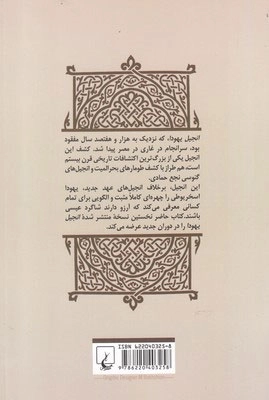 انجیل یهودا، که نزدیک به هزار و هفتصد سال مفقود
بود، سرانجام در غاری در مصر پیدا شد. کشف این
انجیل یکی از بزرگ‌ترین اکتشافات تاریخی قرن بیستم
است، هم‌طراز با کشف طومارهای بحرالمیت و انجیل‌های
گنوسی نجع حمادی.
این انجیل، برخلاف انجیل‌های عهد جدید، یهودا
اسخریوطی را چهره‌ای کاملاً مثبت و الگویی برای تمام
کسانی معرفی می‌کند که آرزو دارند شاگرد عیسی
باشند. کتاب حاضر نخستین نسخهٔ منتشر شدهٔ انجیل
یهودا را در دوران جدید عرضه می‌کند.
ISBN 622040325-8
9786220403258